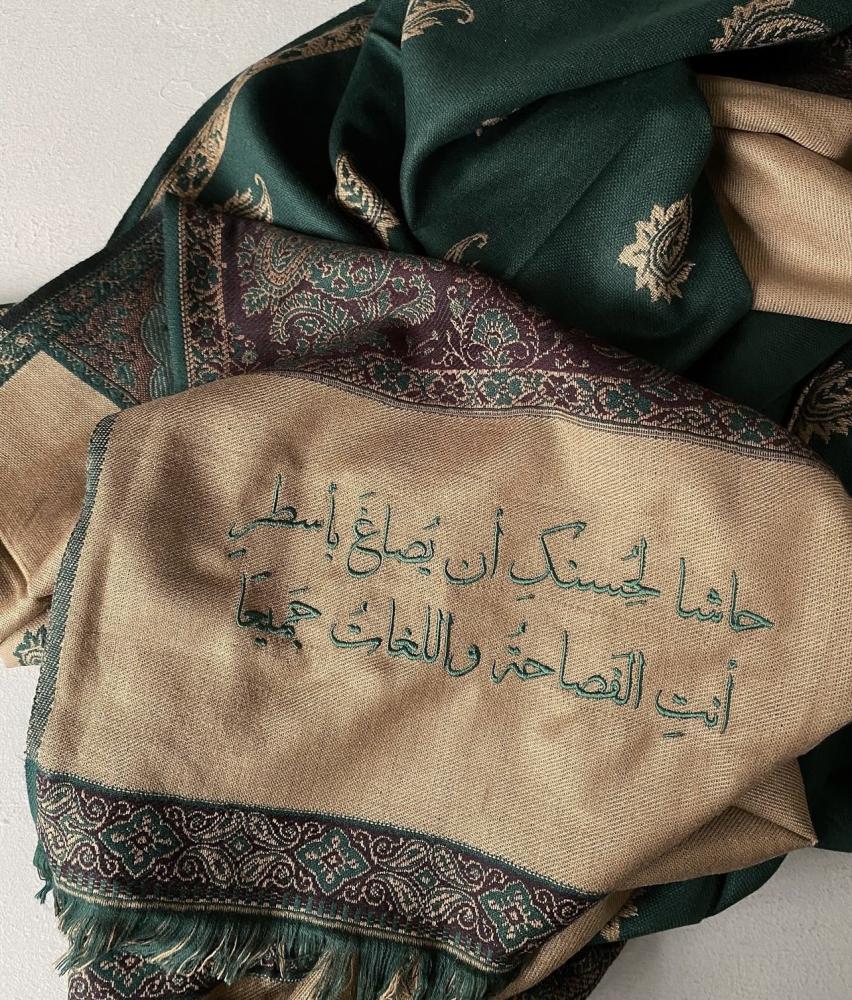 حاشا لحُِسنكِ أن يُصاغَ بأسطرِ
أنتِ الفَصاحةُ واللغاتُ جَميعَا